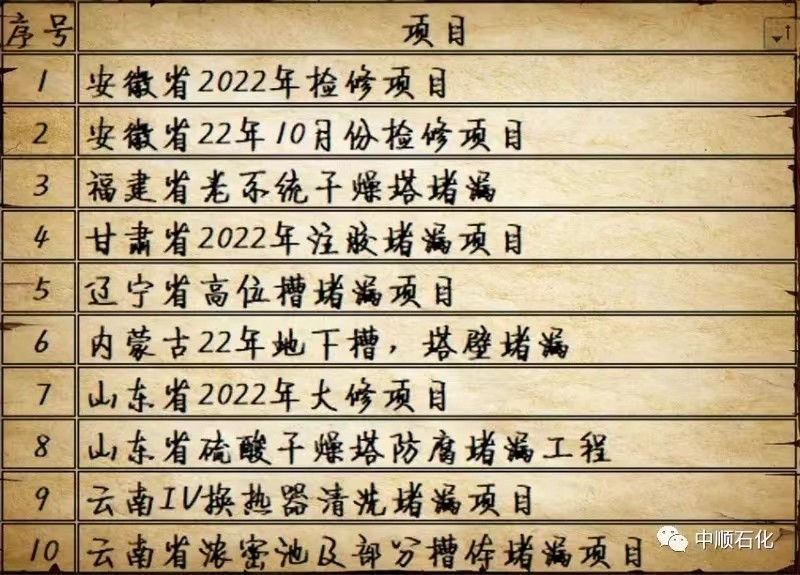 序号 项目
1 安徽省2022年检修项目
2 安徽省22年10月份检修项目
3 福建省老系统干燥塔堵漏
4 甘肃省2022年注胶堵漏项目
5 辽宁省高位槽堵漏项目
6 内蒙古22年地下槽，塔壁堵漏
7 山东省2022年大修项目
8 山东省硫酸干燥塔防腐堵漏工程
9 云南IV换热器清洗堵漏项目
10 云南省浓密池及部分槽体堵漏项目
中顺石化